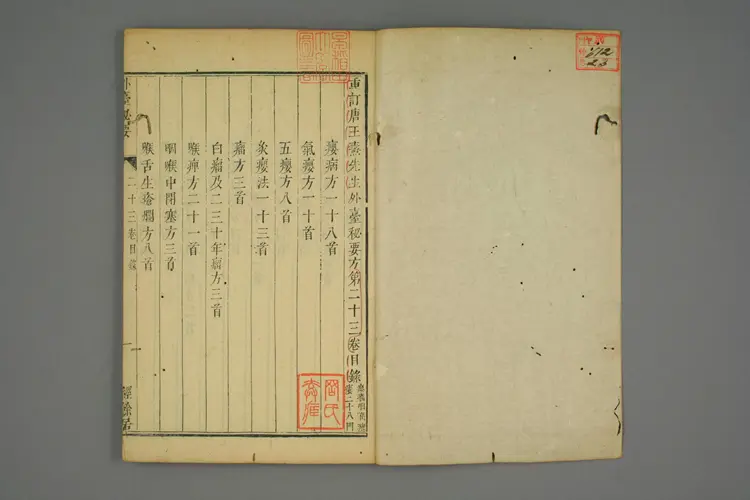 重訂唐王燾先生外臺秘要方第二十三卷目錄
癭二十八門
癭病方一十八首
氣癭方一十首
五癭方八首
灸癭法一十三首
瘤方三首
白瘤及二三十年瘤方三首
喉痺方二十一首
咽喉中閉塞方三首
喉舌生瘡爛方八首
外臺秘要
二十三卷目錄
一
經餘居